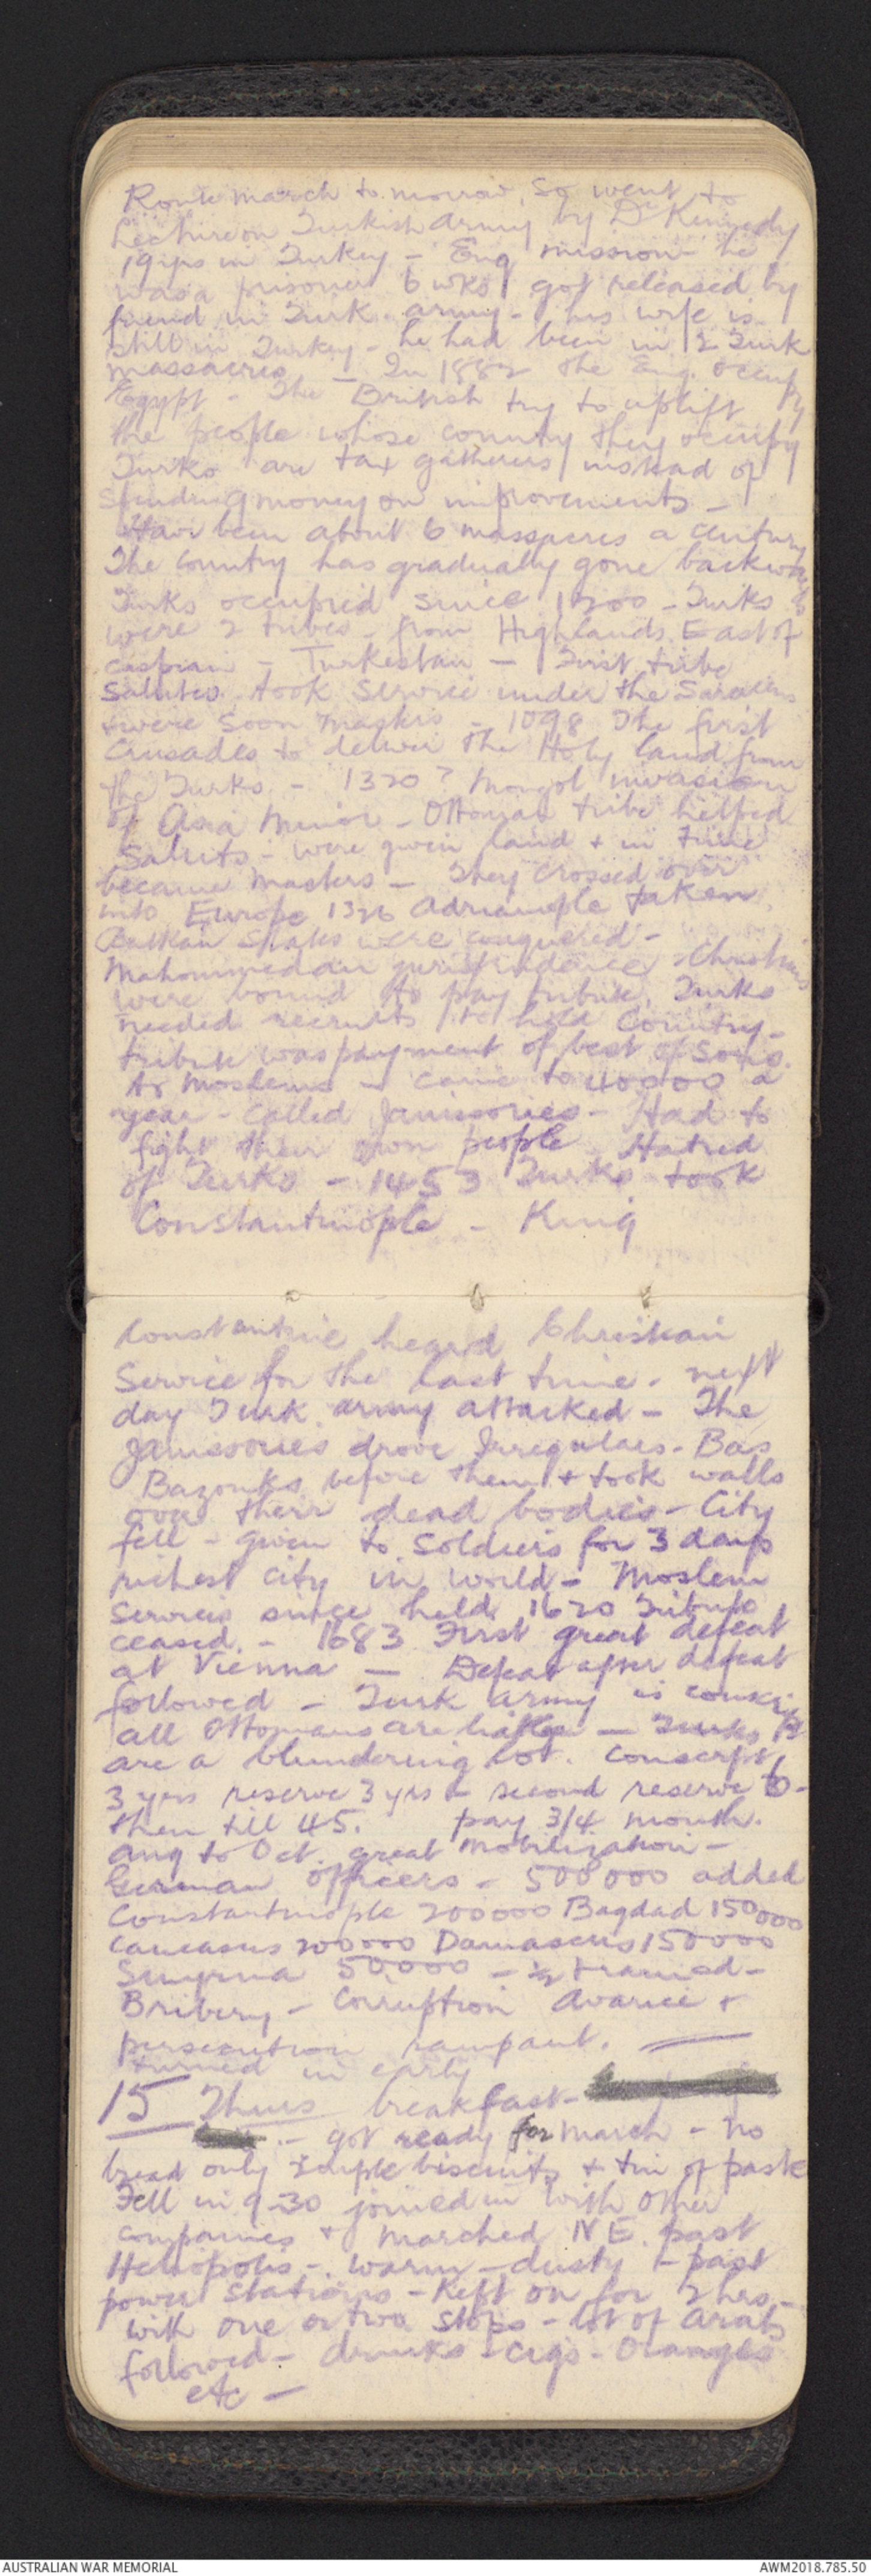 Route march to morrow, So went to
Lecture on Turkish Army by Dr Kennedy
19 yrs in Turkey - Eng mission - he
was a prisoner 6 wks / got released by
friend in Turk army - his wife is
still in Turkey - he had been in 2 Turk
massacres - In 1882 the Eng. occupy
Egypt - The British try to uplift
the people whose country they occupy
Turks are tax gatherers / instead of
spending money on improvements -
Have been about 6 massacres a century
The country has gradually gone backwards
Turks occupied since 1200 - Turks
were 2 tribes - from Highlands East of
caspian - Turkestan - First tribe
took service under the Saracens
+ were soon masters - 1098 The first
Crusades to deliver the Holy land from
the Turks - 1320? Mongol invasion
of Asia Minor - Ottoman tribe helped
- were given land + in time
became masters - They crossed over
into Europe 1326 Adrianople taken
Balkan States were conquered -
Mahommedan jurisprudence Christians
were bound to pay tribute. Turks
needed recruits to hold Country -
tribute was payment of best of sons.
As Moslems - came to 40000 a
year - called Janissories - Had to
fight their own people Hatred
of Turks - 1453 Turks took
Constantinople - King
Constantine heard Christian
Service for the last time - next
day Turk army attacked - The
Janissories drove Irregulars - Bas
Bazonks before them + took walls
over their dead bodies - City
fell - given to Soldiers for 3 days
richest city in world - Moslem
Services since held. 1620 Tribute
ceased. - 1683 First great defeat
at Vienna - Defeat after defeat
followed - Turk army is conscript
all Ottomans are liable - Turks
are a blundering lot. Conscript
3 yrs reserve 3 yrs - second reserve 6 -
then till 45. pay 3/4 month.
Aug to Oct. great mobilization -
German officers - 500000 added
Constantinople 200000 Bagdad 150000
Caucasus 200000 Damascus 150000
Smyrna 50,000 - ½ trained -
Bribery - Corruption Avarice +
persecution rampant. -
turned in early
15 Thurs breakfast -
- got ready for march - no
bread only biscuits + tin of paste
Fell in 9-30 joined in with other
companies + marched N E. past
Heliopolis - warm - dusty - past
power stations - Kept on for 2 hrs -
with one or two stops - lot of arabs
followed - drinks - cigs - Oranges
etc -
AUSTRALIAN WAR MEMORIAL
AWM2018.785.50